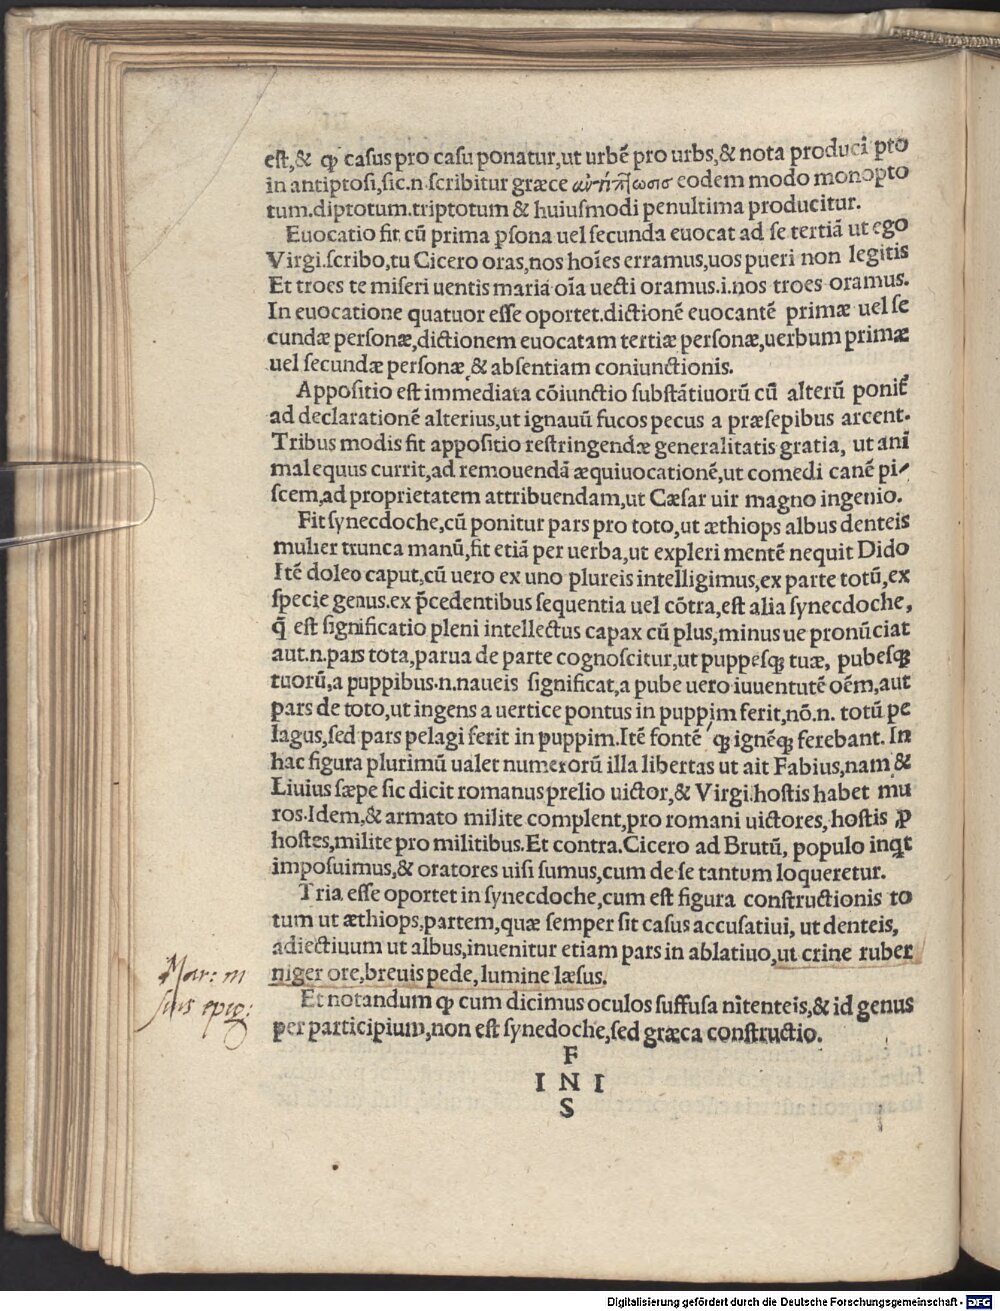 est,& ꝙ casus pro casu ponatur,ut urbē pro urbs,& nota produci pto
in antiptosi,sic.n.scribitur græce ἀντίπτωσισ eodem modo monopto
tum.diptotum.triptotum & huiusmodi penultima producitur.
Euocatio fit cū prima ꝑsona uel secunda euocat ad se tertiā ut ego
Virgi.scribo,tu Cicero oras,nos hoīes erramus,uos pueri non legitis
Et troes te miseri uentis maria oīa uecti oramus.i.nos troes oramus.
In euocatione quatuor esse oportet.dictionē euocantē primæ uel se
cundæ personæ,dictionem euocatam tertiæ personæ,uerbum primæ
uel secundæ personæ & absentiam coniunctionis.
Appositio est immediata cōiunctio substātiuorū cū alterū ponit̄
ad declarationē alterius,ut ignauū fucos pecus a præsepibus arcent.
Tribus modis fit appositio restringendæ generalitatis gratia, ut ani
mal equus currit,ad remouendā æquiuocationē,ut comedi canē pi/
scem,ad proprietatem attribuendam,ut Cæsar uir magno ingenio.
Fit synecdoche,cū ponitur pars pro toto,ut æthiops albus denteis
mulier trunca manū,fit etiā per uerba,ut expleri mentē nequit Dido
Itē doleo caput,cū uero ex uno plureis intelligimus,ex parte totū,ex
specie genus.ex p̄cedentibus sequentia uel cōtra,est alia synecdoche,
q̄ est significatio pleni intellectus capax cū plus,minus ue pronūciat
aut.n.pars tota,parua de parte cognoscitur,ut puppesqꝫ tuæ, pubesqꝫ
tuorū,a puppibus.n.naueis significat,a pube uero iuuentutē oēm,aut
pars de toto,ut ingens a uertice pontus in puppim ferit,nō.n. totū pe
lagus,sed pars pelagi ferit in puppim.Itē fontē qꝫ ignēqꝫ ferebant. In
hac figura plurimū ualet numerorū illa libertas ut ait Fabius,nam &
Liuius sæpe sic dicit romanus prelio uictor,& Virgi.hostis habet mu
ros.Idem,& armato milite complent,pro romani uictores, hostis ꝓ
hostes,milite pro militibus.Et contra.Cicero ad Brutū, populo inqͥt
imposuimus,& oratores uisi sumus,cum de se tantum loqueretur.
Tria esse oportet in synecdoche,cum est figura constructionis to
tum ut æthiops,partem,quæ semper sit casus accusatiui, ut denteis,
adiectiuum ut albus,inuenitur etiam pars in ablatiuo,ut crine ruber
niger ore,breuis pede,lumine læsus.
Mar: in
suis epig:
Et notandum ꝙ cum dicimus oculos suffusa nitenteis,& id genus
per participium,non est synedoche,sed græca constructio.
F
I N I
S
Digitalisierung gefördert durch die Deutsche Forschungsgemeinschaft - DFG